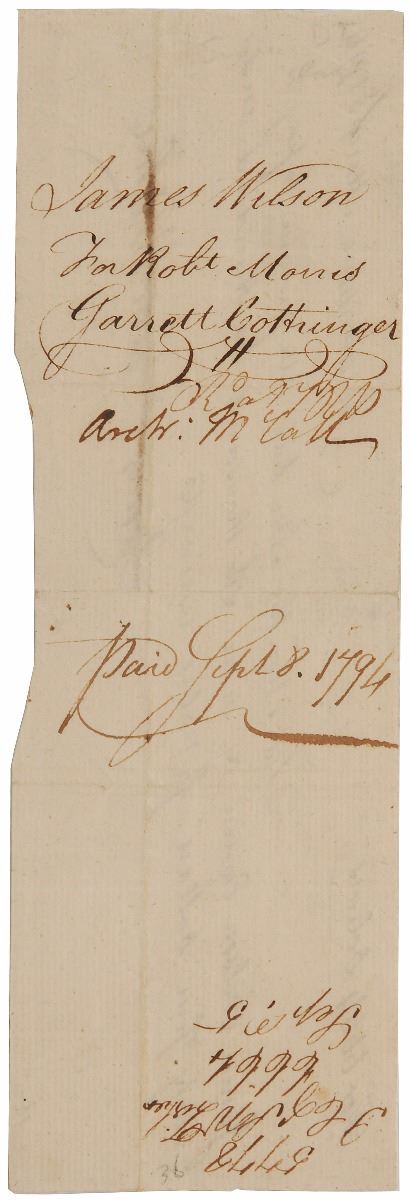 James Wilson
For Robt Morris
Garrett Cottringer
Arch: McCall
Paid Sept 8. 1794
5778
6664
Sep 5
36